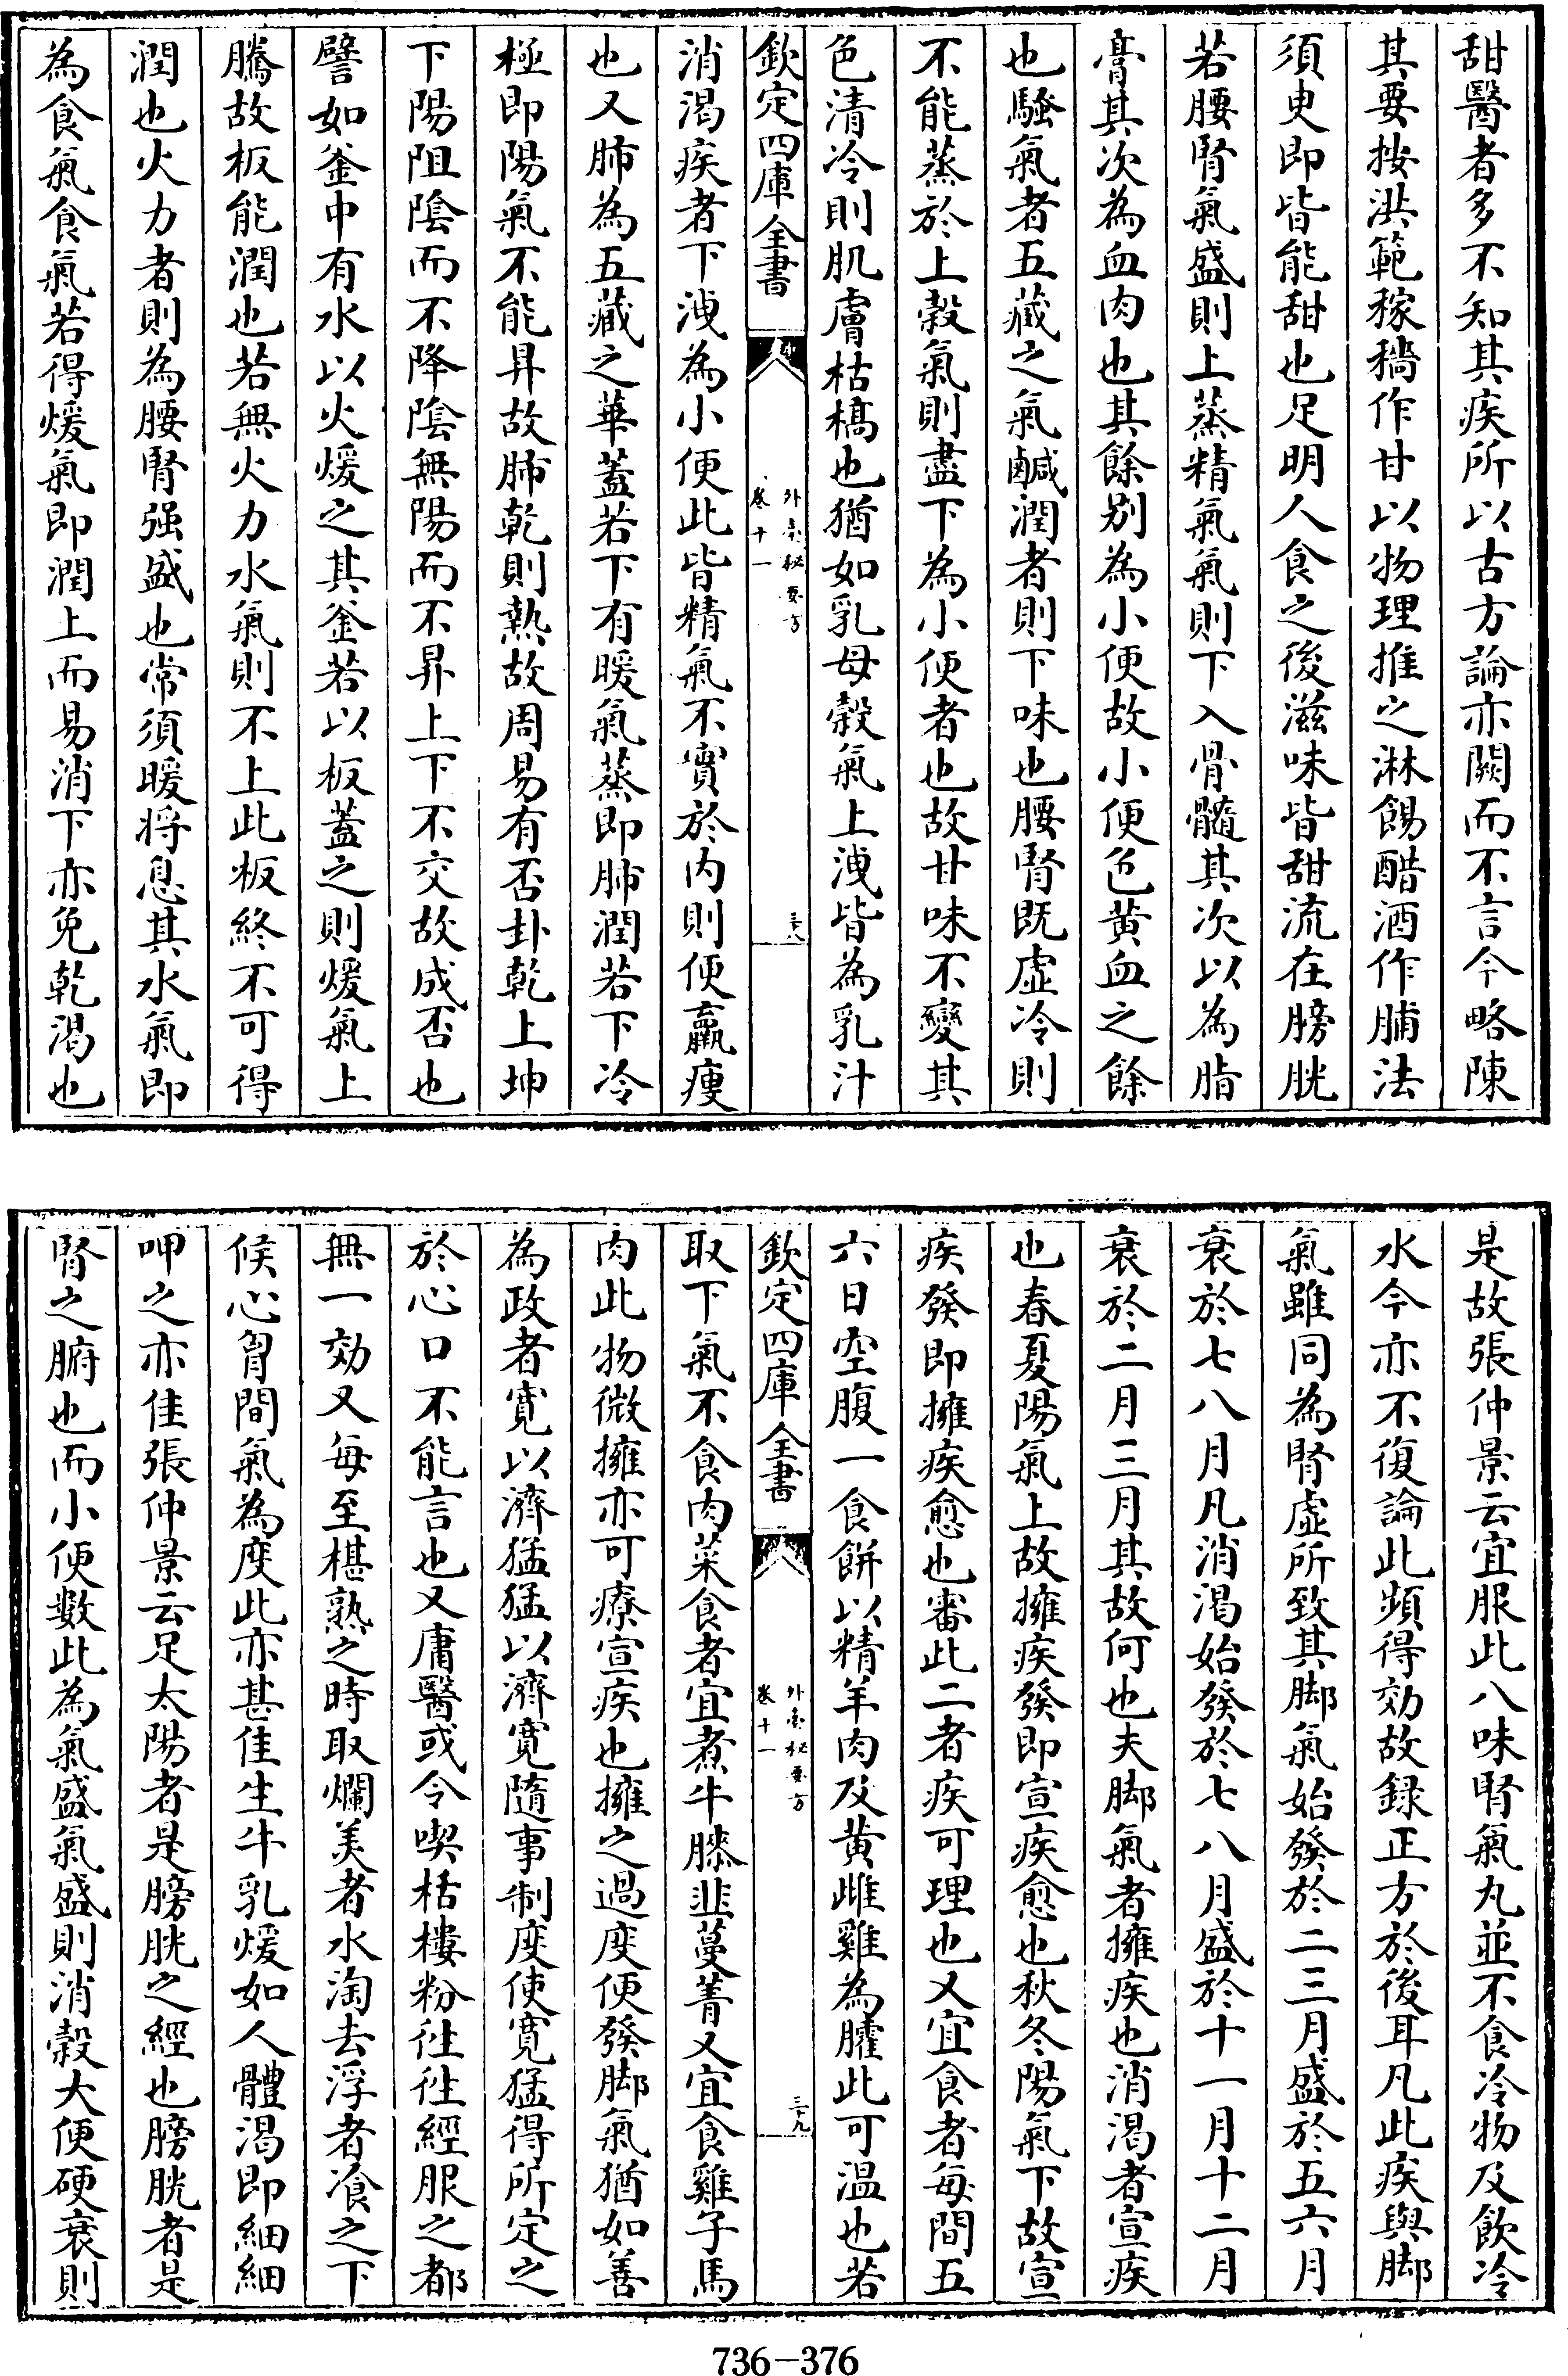 甜醫者多不知其疾所以古方論亦闕而不言今略陳
其要按洪範稼穡作甘以物理推之淋餳醋酒作脯法
須臾即皆能甜也足明人食之後滋味皆甜流在膀胱
若腰腎氣盛則上蒸精氣氣則下入骨髓其次以為脂
膏其次為血肉也其餘別為小便故小便色黄血之餘
也騷氣者五藏之氣鹹潤者則下味也腰腎既虛冷則
不能蒸於上穀氣則盡下為小便者也故甘味不變其
色清冷則肌膚枯槁也猶如乳母穀氣上洩皆為乳汁
欽定四庫全書
外臺秘要方
卷十一
三十八
消渴疾者下洩為小便此皆精氣不實於内則便羸瘦
也又肺為五藏之華蓋若下有暖氣蒸即肺潤若下冷
極即陽氣不能昇故肺乾則熱故周易有否卦乾上坤
下陽阻陰而不降陰無陽而不昇上下不交故成否也
譬如釜中有水以火煖之其釜若以板蓋之則煖氣上
騰故板能潤也若無火力水氣則不上此板終不可得
潤也火力者則為腰腎强盛也常須暖將息其水氣即
為食氣食氣若得煖氣即潤上而易消下亦免乾渴也
是故張仲景云宜服此八味腎氣丸並不食冷物及飲冷
水今亦不復論此頻得効故録正方於後耳凡此疾與脚
氣雖同為腎虛所致其脚氣始發於二三月盛於五六月
衰於七八月凡消渴始發於七八月盛於十一月十二月
衰於二月三月其故何也夫脚氣者擁疾也消渴者宣疾
也春夏陽氣上故擁疾發即宣疾愈也秋冬陽氣下故宣
疾發即擁疾愈也審此二者疾可理也又宜食者每間五
六日空腹一食餅以精羊肉及黄雌雞為臛此可温也若
欽定四庫全書
外臺秘要方
卷十一
三十九
取下氣不食肉菜食者宜煮牛膝韭蔓菁又宜食雞子馬
肉此物微擁亦可療宣疾也擁之過度便發脚氣猶如善
為政者寛以濟猛猛以濟寛隨事制度使寛猛得所定之
於心口不能言也又庸醫或令喫栝樓粉往往經服之都
無一効又每至椹熟之時取爛美者水淘去浮者飡之下
候心胷間氣為度此亦甚佳生牛乳煖如人體渴即細細
呷之亦佳張仲景云足太陽者是膀胱之經也膀胱者是
腎之腑也而小便數此為氣盛氣盛則消穀大便硬衰則
736-376